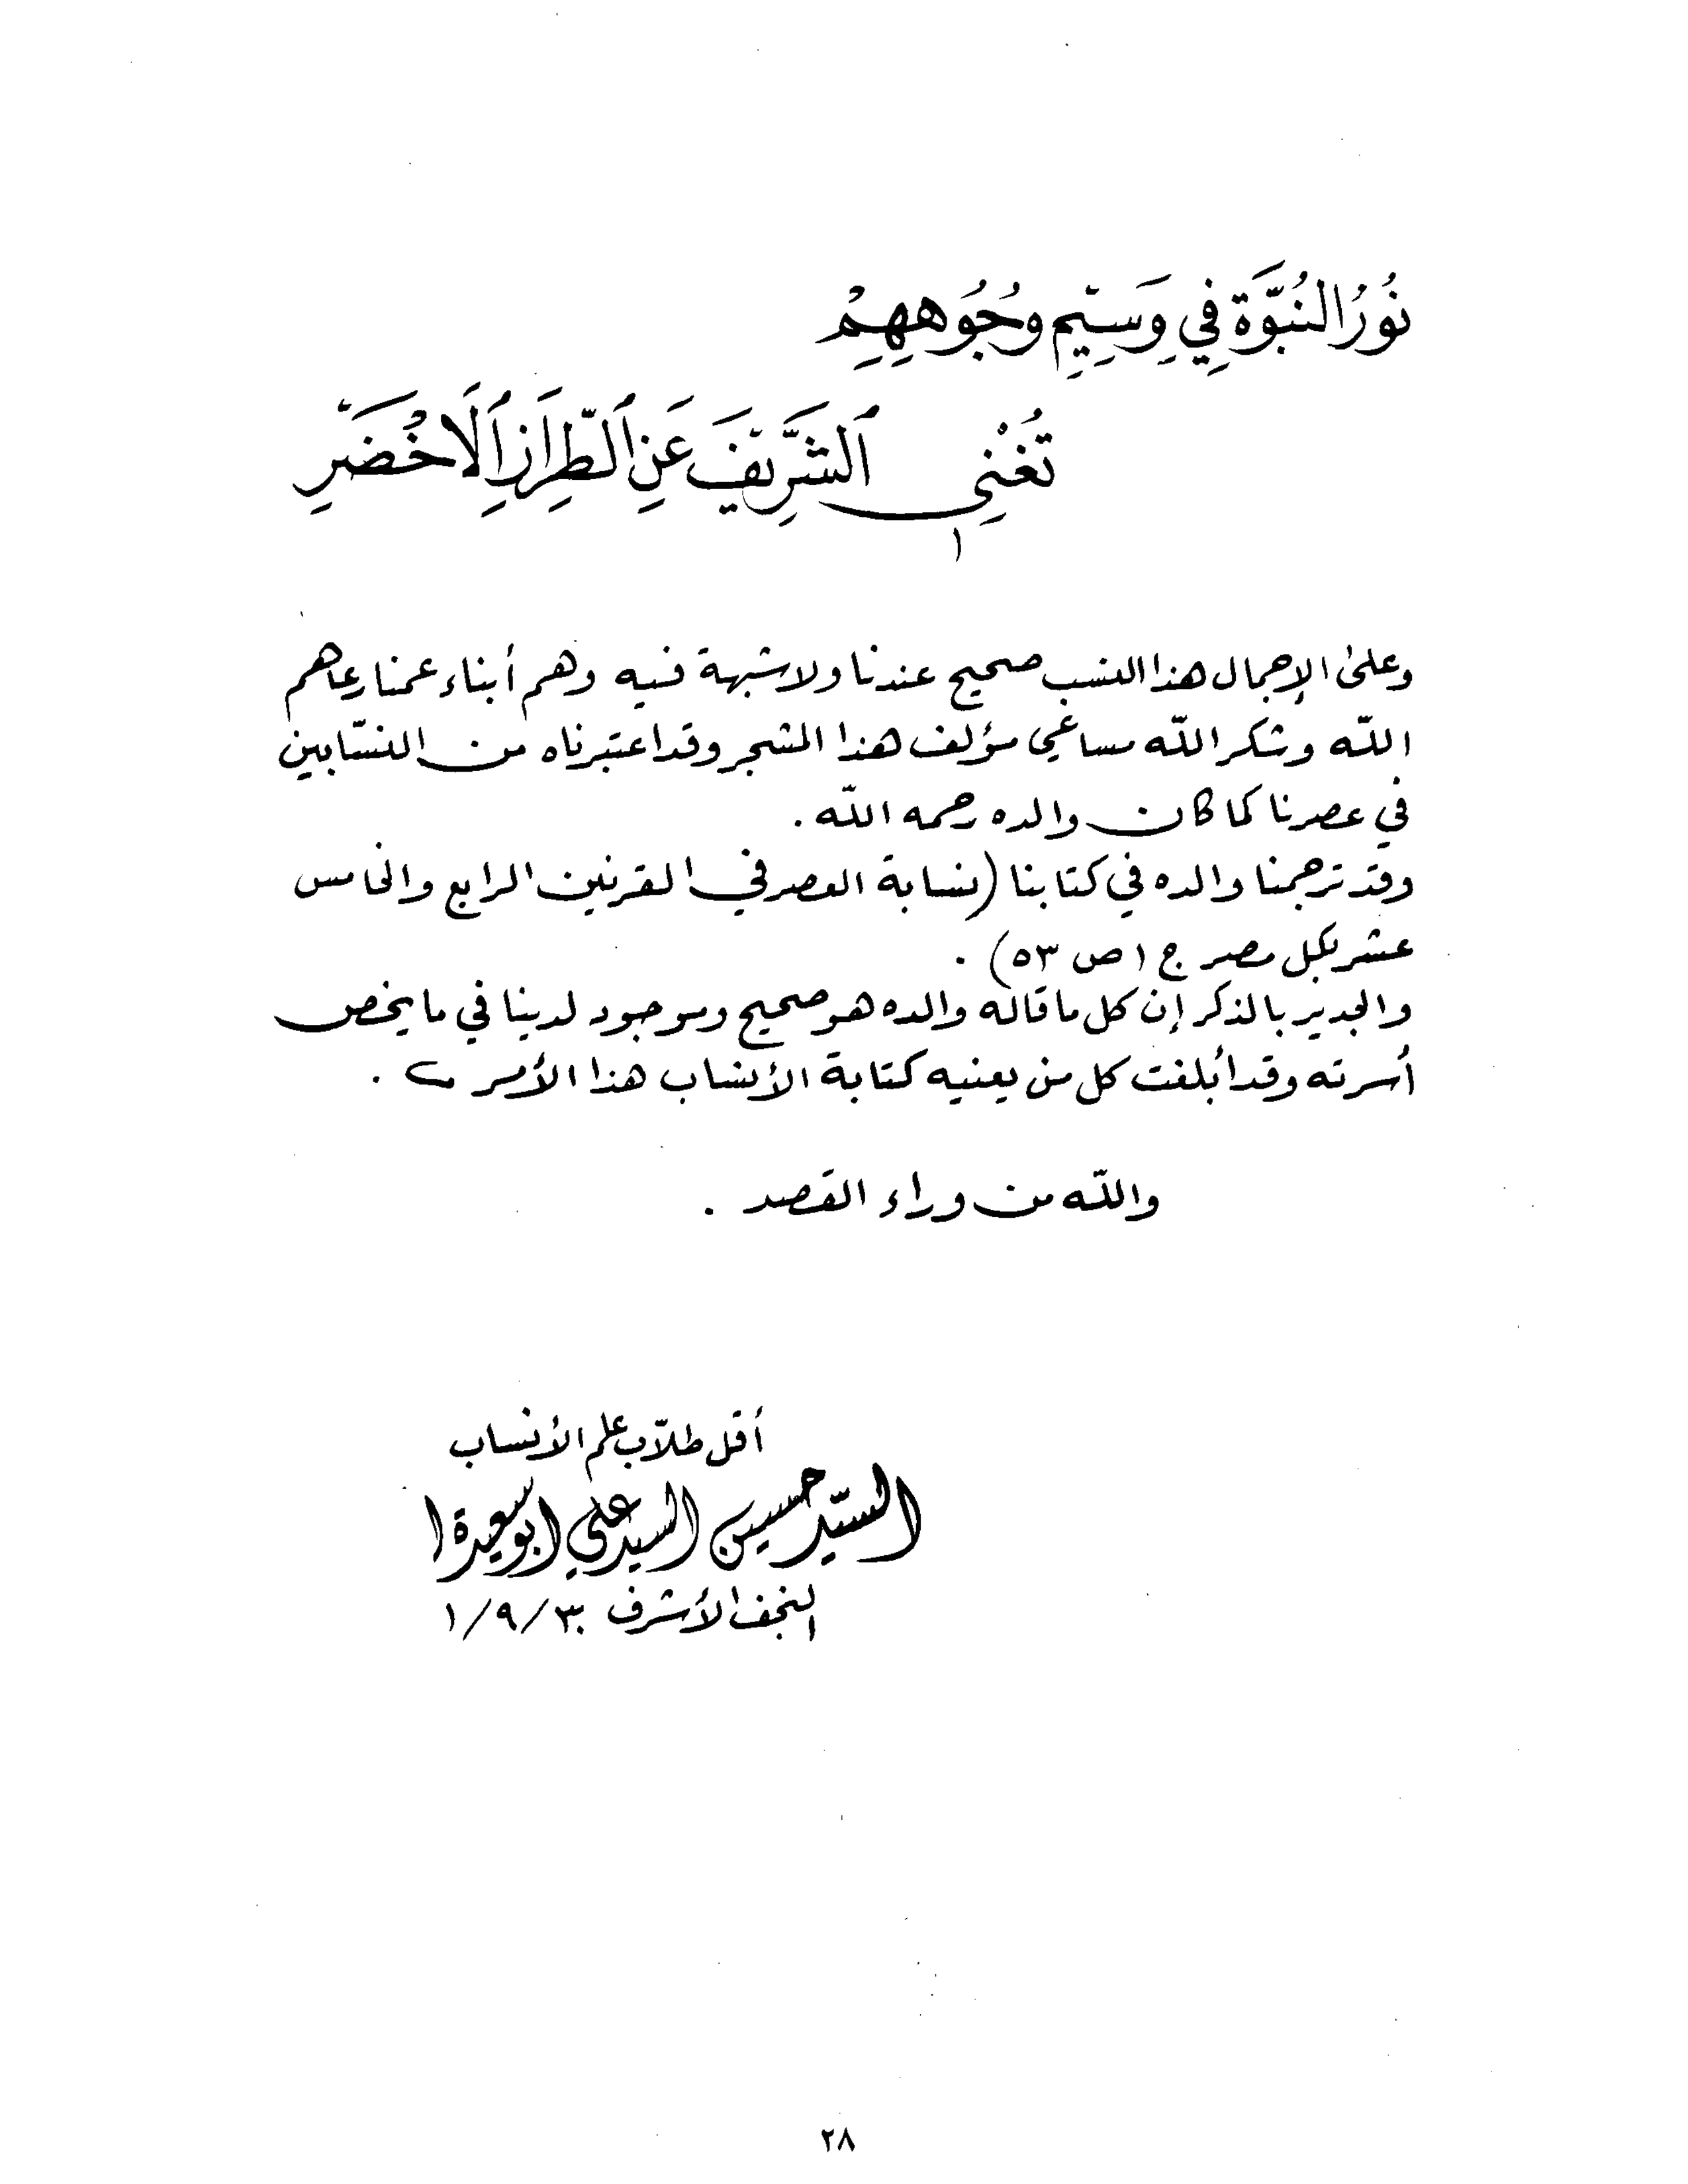 نُورُ النُبُوَّةِ فِي وَسِيْمِ وُجُوهِهِمْ
تُغْنِي الشَّرِيْفَ عَنِ الطِّرَازِ الْأَخْضَرِ
١
وعلىٰ الإجمال هذا النسب صحيح عندنا ولا شبهة فيه وهم أبناء عمنا رعاهم
الله وشكر الله مساعي مؤلف هذا المشجر وقد اعتبرناه من النسّابين
في عصرنا كما كان والده رحمه الله .
وقد ترجمنا والده في كتابنا (نسابة العصر في القرنين الرابع والخامس
عشر بكل مصر ج ١ ص ٥٣) .
والجدير بالذكر إن كل ما قاله والده هو صحيح وموجود لدينا في ما يخص
أسرته وقد أبلغت كل من يعنيه كتابة الأنساب هذا الأمر .
والله من وراء القصد .
أقل طلّاب علم الأنساب
السيّد حسين السيد علي ابو سعيدة
النجف الأشرف ٣٠/٩/١
٢٨